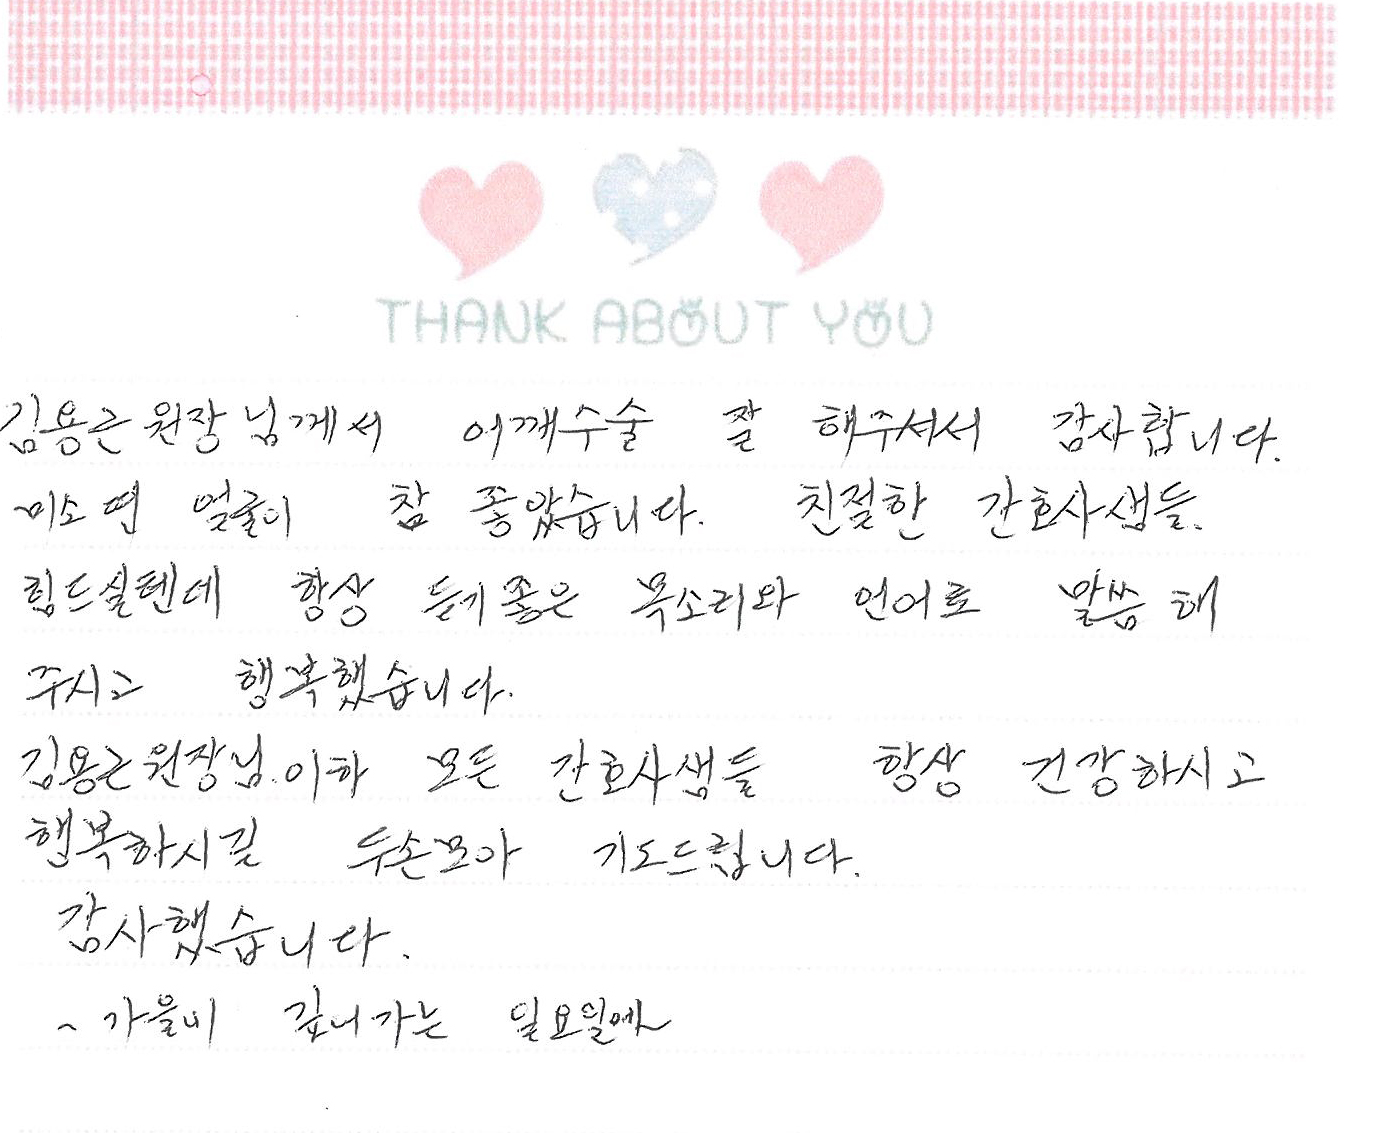 THANK ABOUT YOU
김용근원장님께서 어깨수술 잘 해주셔서 감사합니다.
미소띤 얼굴이 참 좋았습니다. 친절한 간호사샘들.
힘드실텐데 항상 듣기좋은 목소리와 언어로 말씀해
주시고 행복했습니다.
김용근원장님.이하 모든 간호사샘들 항상 건강하시고
행복하시길 두손모아 기도드립니다.
감사했습니다.
~ 가을비 깊어가는 일요일에~